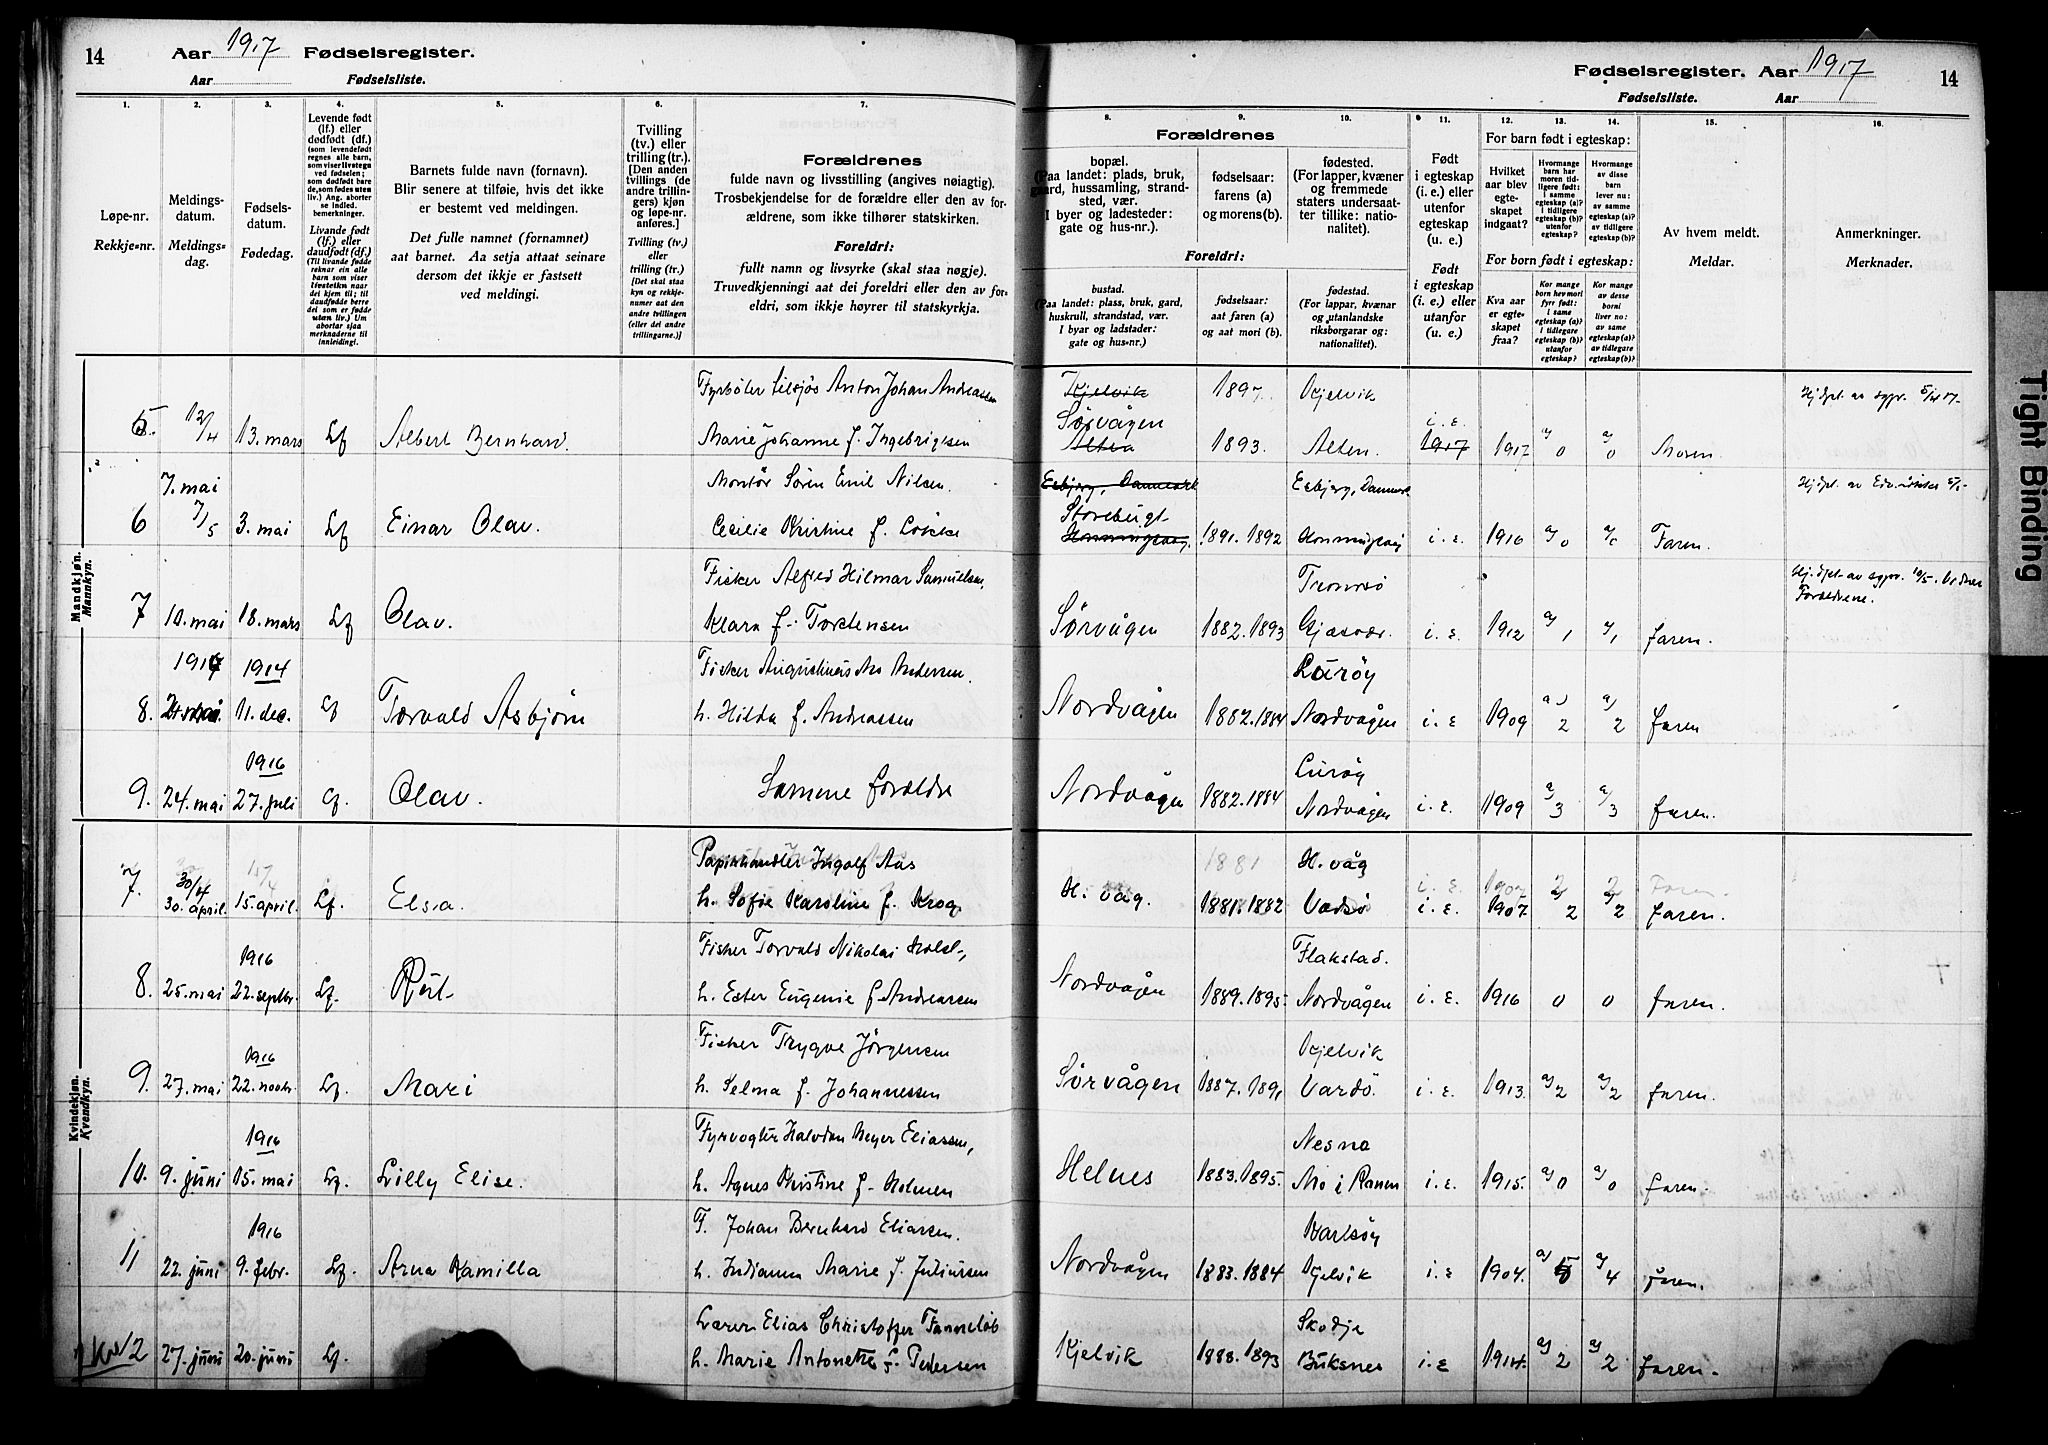 14 Aar 1917 Fødselsregister.
Aar Fødselsliste.
Fødselsregister. Aar 1917 14
Fødselsliste. Aar
1. 2. 3. 4. 5. 6. 7.
Løpe-nr.
Rekkje-nr.
Meldings-
datum.
Meldings-
dag.
Fødsels-
datum.
Fødedag.
Levende født
(lf.) eller
dødfødt (df.)
(som levendefødt
regnes alle barn,
som viser livstegn
ved fødselen;
som dødfødt bare
de, som fødes uten
liv.) Ang. aborter
se indled.
bemerkninger.
Livande født
(lf.) eller
daudfødt (df.)
(Til livande fødde
reknar ein alle
barn som viser
livsteikn naar
dei kjem til; til
daudfødde berre
dei som er fødde
utan liv.) Um
abortar sjaa
merknaderne til
innleidingi.
Barnets fulde navn (fornavn).
Blir senere at tilføie, hvis det ikke
er bestemt ved meldingen.
Det fulle namnet (fornamnet)
aat barnet. Aa setja attaat seinare
dersom det ikkje er fastsett
ved meldingi.
Tvilling
(tv.) eller
trilling (tr.).
[Den anden
tvillings (de
andre trillin-
gers) kjøn
og løpe-nr.
anføres.]
Tvilling (tv.)
eller
trilling (tr.)
[Det skal staa
kyn og rekkje-
numer aat den
andre tvillingen
(eller dei andre
trillingarne.)]
Forældrenes
fulde navn og livsstilling (angives nøiagtig).
Trosbekjendelse for de forældre eller den av for-
ældrene, som ikke tilhører statskirken.
Foreldri:
fullt namn og livsyrke (skal staa nøgje).
Truvedkjenningi aat dei foreldri eller den av for-
eldri, som ikkje høyrer til statskyrkja.
8. 9. 10. 11. 12. 13. 14. 15. 16.
Forældrenes
bopæl.
(Paa landet: plads, bruk,
gaard, hussamling, strand-
sted, vær.
I byer og ladesteder:
gate og hus-nr.).
fødselsaar:
farens (a)
og morens (b).
fødested.
(For lapper, kvæner
og fremmede
staters undersaat-
ter tillike: natio-
nalitet).
Foreldri:
bustad.
(Paa landet: plass, bruk, gard,
huskrull, strandstad, vær.
I byar og ladstader:
gate og hus-nr.)
fødselsaar:
aat faren (a)
og aat mori (b).
fødestad.
(For lappar, kvænar
og utanlandske
riksborgarar og:
nationalitet).
Født
i egteskap
(i. e.) eller
utenfor
egteskap
(u. e.)
Født
i egteskap
(i. e.) eller
utanfor
(u. e.)
For barn født i egteskap:
Hvilket
aar blev
egte-
skapet
indgaat?
Hvormange
barn har
moren tid-
ligere født:
i samme
egteskap (a)?
i tidligere
egteskap (b)?
utenfor
egteskap?
Hvormange
av disse
barn
lever nu:
av samme
egteskap (a)?
av tidligere
egteskap (b)?
For born født i egteskap:
Kva aar
er egte-
skapet
fraa?
Kor mange
born hev mori
fyrr født:
i same
egteskap (a)?
i tidlegare
egteskap (b)?
utanfor
egteskap?
Kor mange
av desse
borni
liver no:
av same
egteskap (a)?
av tidlegare
egteskap (b)?
Av hvem meldt.
Meldar.
Anmerkninger.
Merknader.
Mandkjøn.
Mannkyn.
Kvindekjøn.
Kvendkyn.
Tight Binding
Fyrbøter tilsjøs Anton Johan Andreassen Kjelvik 1897. Kjelvik
5. 12/4 13. mars Lf Albert Bernhard. Marie Johanne f. Ingebrigtsen Sørvågen Alten 1893. Alten. i. e. 1917 1917 a/0 a/0 Moren.
7. mai Montør Søren Emil Nilsen. Esbjerg, Danmark Esbjerg, Danmark
6 7/5 3. mai Lf Einar Olav. Cecilie Kristine f. Storebugt Honningsvåg. 1891. 1892 Honningsvåg i. e. 1916 a/0 Faren.
Fisker Alfred Hilmar Samuelsen, Tromsø
Forældrene.
7 10. mai 18. mars Lf Olav. Klara f. Torstensen Sørvågen 1882. 1893 Gjæsvær. i. e. 1912 a/1 a/1 faren.
1917 1914 Fisker Augustinus Andersen. Lurøy
8. 11. dec. Lf Torvald Asbjørn h. Hilda f. Andreassen Nordvågen 1882. 1884 Nordvågen i. e 1909 a/2 a/2 faren
1916 Lurøy
9. 24. mai 27. juli Lf. Olav. Samme forældre Nordvågen 1882. 1884 Nordvågen i. e. 1909 a/3 a/3 faren.
30/4 Papirhandler Ingolf Aas 1881 H. våg
7. 30. april. 15. april. Lf. Elsa. h. Sofie Karoline f. Krog H. våg. 1881. 1882 Vadsø i. e. 1907 a/2 a/2 faren.
1916 Fisker Torvald Nikolai Holst, Flakstad.
8. 25. mai 22. septbr. Lf. Rut h. Ester Eugenie f. Andreassen Nordvågen 1889. 1895 Nordvågen i. e. 1916 0 0 faren.
1916 Fisker Trygve Jørgensen Kjelvik
9. 27. mai 22. novbr. Lf. Mari h. Selma f. Johannessen Sørvågen 1887. 1891 Vardø. i. e. 1913. a/2 a/2 faren.
1916 Fyrvogter Halvdan Meyer Eliassen, Nesna
10. 9. juni 15. mai Lf. Lilly Elise. h. Agnes Kristine f. Holmen Helnes 1883. 1895. Mo i Ranen i. e. 1915. a/0 a/0 faren.
1916 F. Johan Bernhard Eliassen. Karlsøy
11 22. juni 9. febr. Lf. Arna Kamilla h. Indianna Marie f. Juliussen Nordvågen 1883. 1884 Kjelvik i. e 1904. a/5 a/4 faren.
Lærer Elias Christoffer Tanneløb Skodje
12 27. juni 20. juni Lf. h. Marie Antonette f. Pedersen Kjelvik 1888. 1893 Buksnes i. e 1914. a/2 a/2 faren.